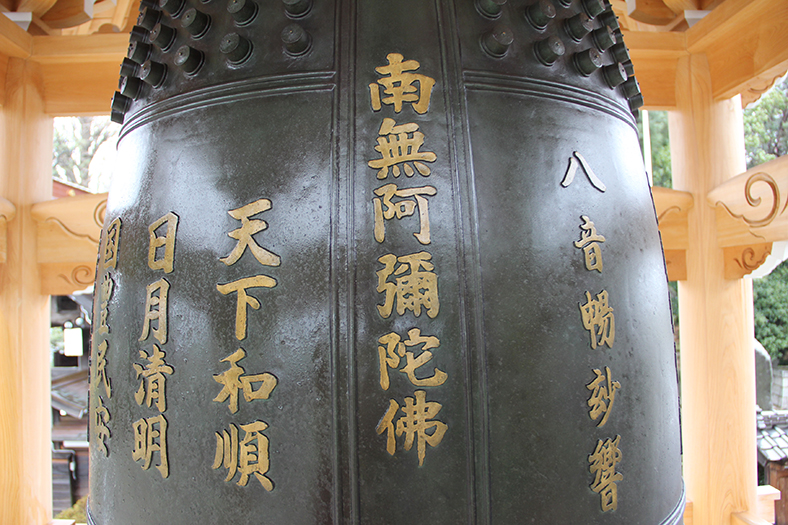 八音暢玅響
南無阿彌陀佛
天下和順
日月清明
国豊民安